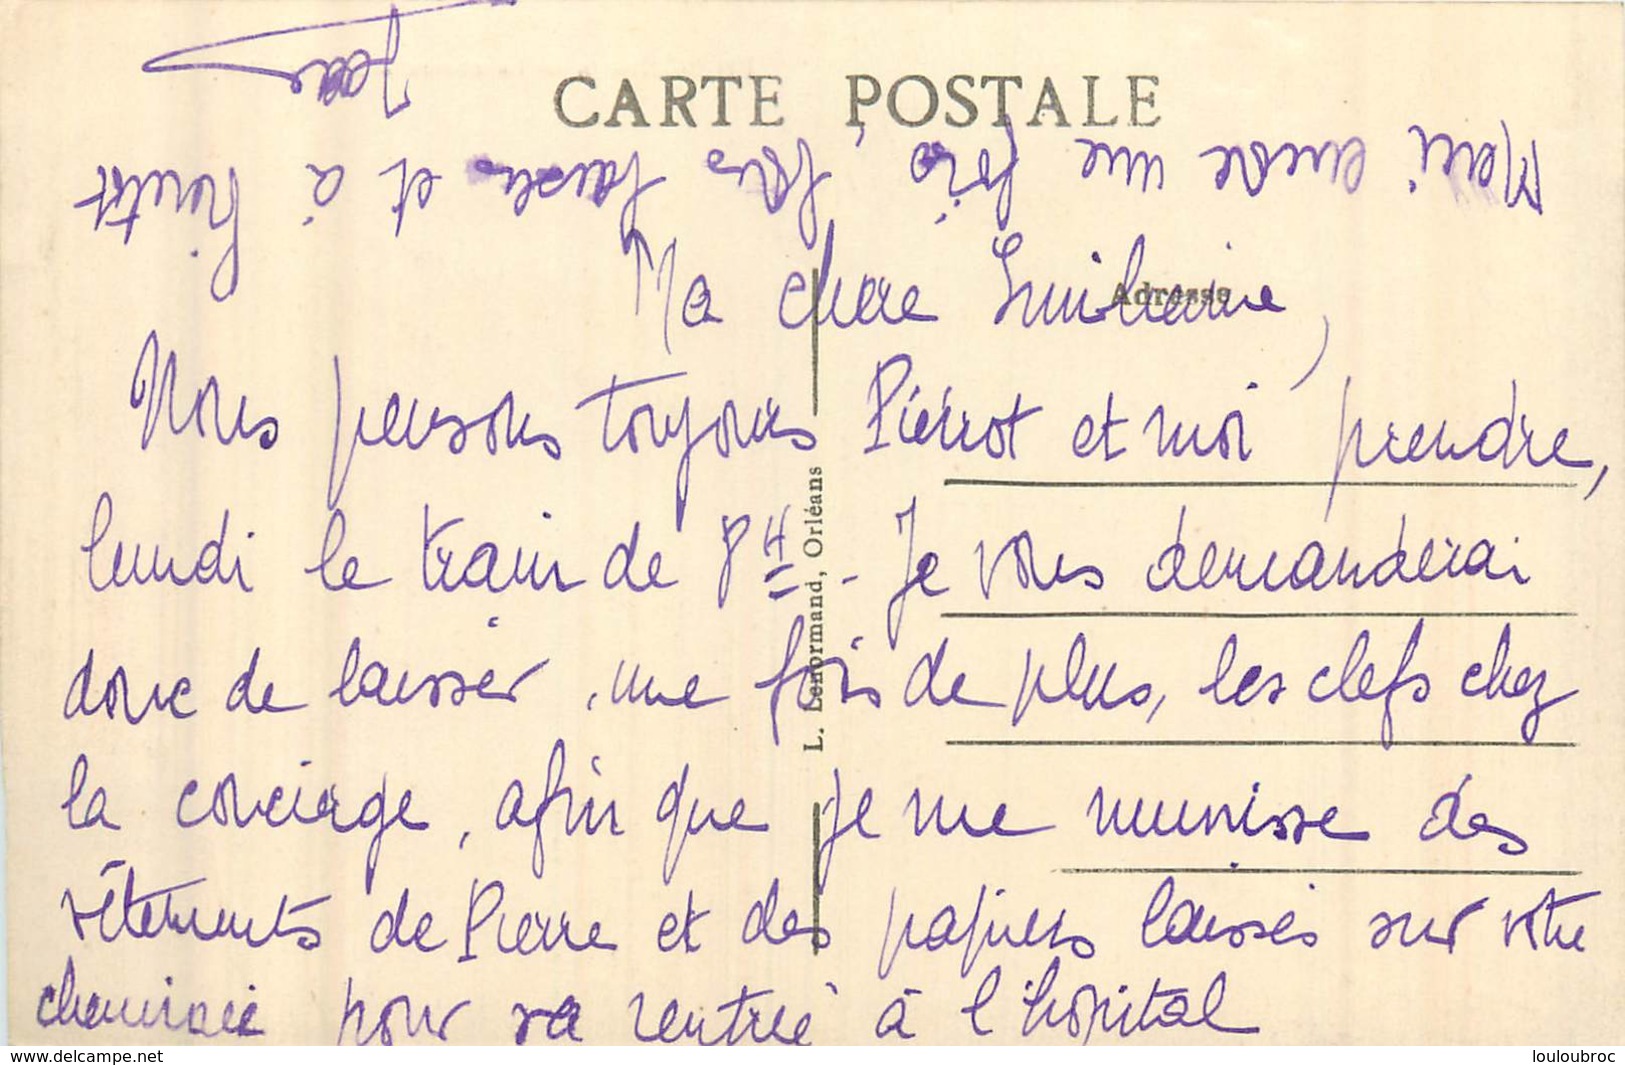 CARTE POSTALE
Adresse
L. Lenormand, Orléans
Ma chère Guilhaine,
Nous pensons toujours Pierrot et moi prendre,
lundi le train de 8H - Je vous demanderai
donc de laisser, une fois de plus, les clefs chez
la concierge, afin que je me munisse des
vêtements de Pierre et des papiers laissés sur votre
cheminée pour sa rentrée à l'hôpital
Merci encore une fois, bons baisers et à bientôt
Jean
louloubroc
www.delcampe.net